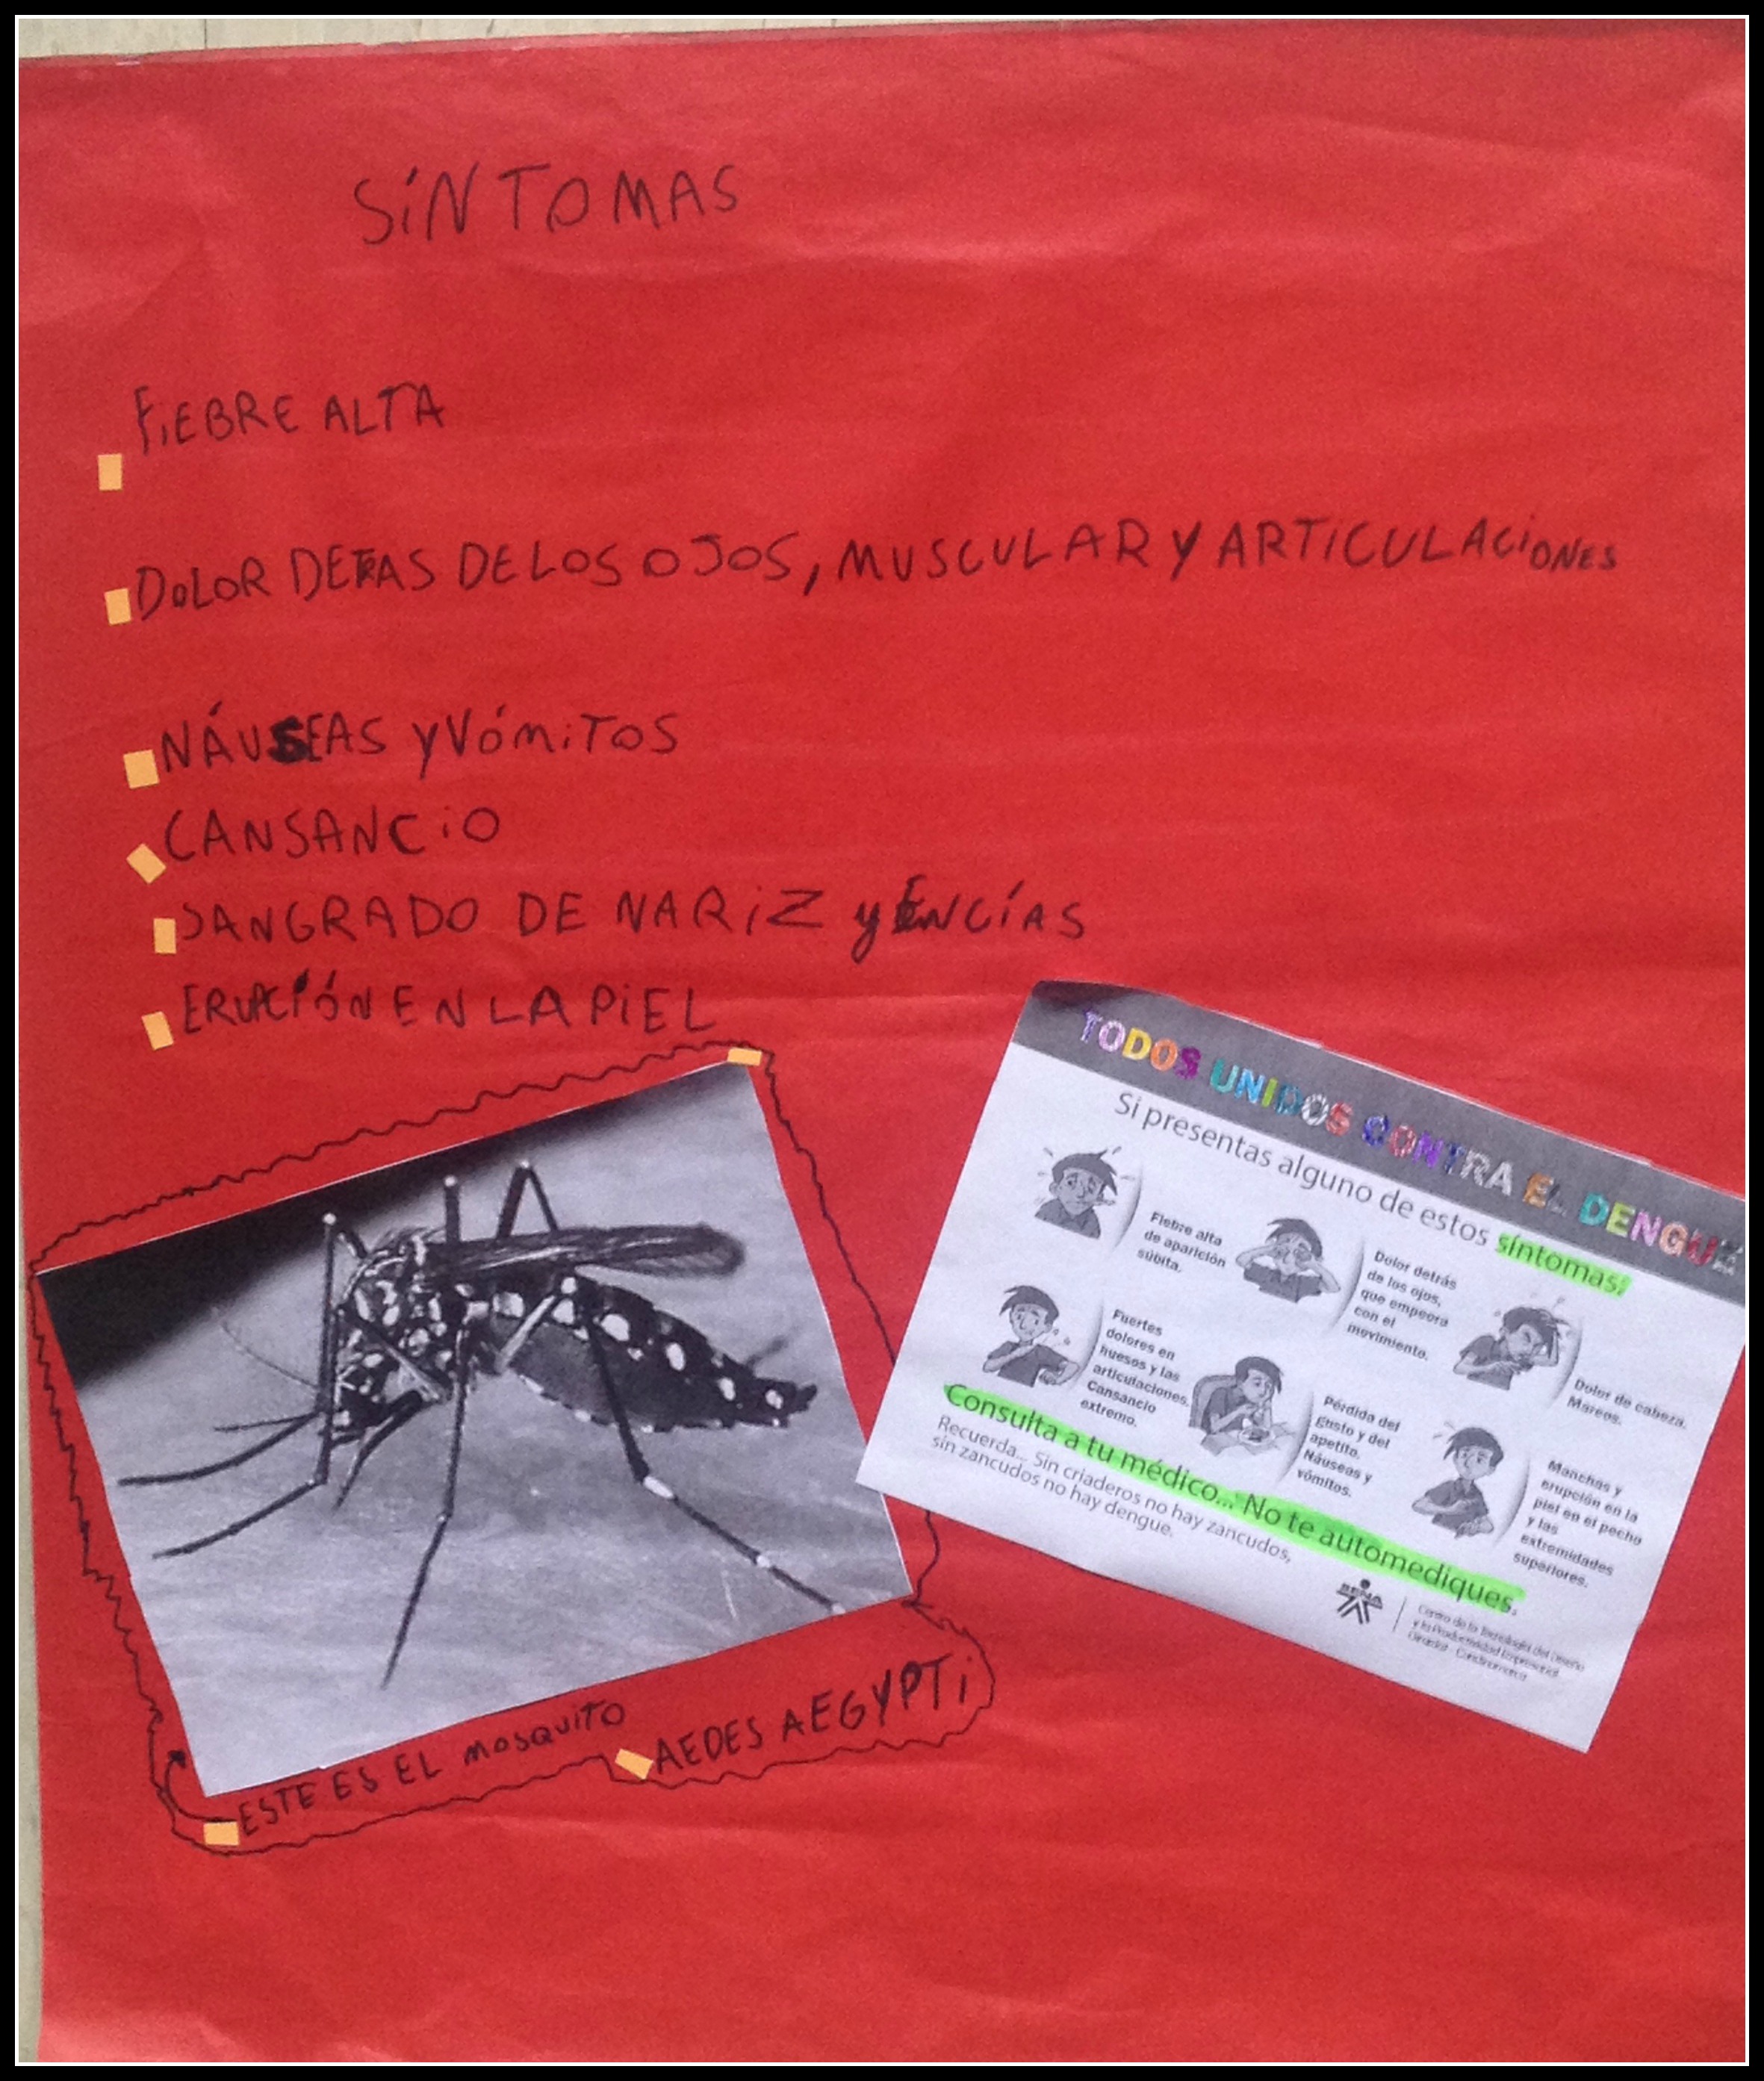 SíNTOMAS
FiEBRE ALTA
DOLOR DETRAS DE LOS OJOS, MUSCULAR Y ARTiCULACiONES
NÁUSEAS y VómiTOS
CANSANCiO
SANGRADO DE NARiZ y ENCíAS
ERUPCIÓN EN LA PiEL
ESTE ES EL mosquiTO
AEDES AEGYPTi
TODOS UNIDOS CONTRA EL DENGUE
Si presentas alguno de estos síntomas:
Fiebre alta
de aparición
súbita.
Dolor detrás
de los ojos,
que empeora
con el
movimiento.
Dolor de cabeza.
Mareos.
Fuertes
dolores en
huesos y las
articulaciones.
Cansancio
extremo.
Pérdida del
gusto y del
apetito.
Náuseas y
vómitos.
Manchas y
erupción en la
piel en el pecho
y las
extremidades
superiores.
Consulta a tu médico... No te automediques.
Recuerda... Sin criaderos no hay zancudos,
sin zancudos no hay dengue.
SENA
Centro de la Tecnología del Diseño
y la Productividad Empresarial
Girardot - Cundinamarca